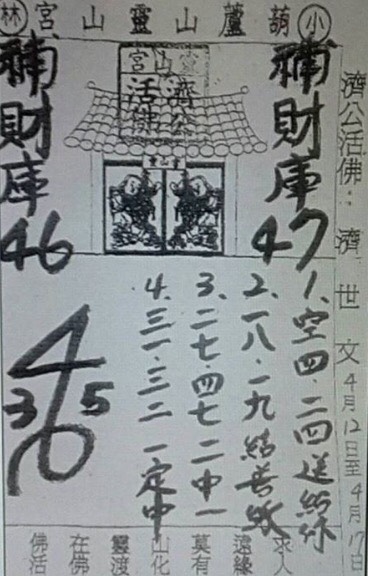 小葫蘆山靈山宮林
濟公活佛：濟世文 4月12日至4月17日
濟公
活佛
補財庫
47
補財庫
46
1、空四·二四送給你
2、一八·一九結善緣
3、二七·四七二中一
4、三一·三二一定中
4
3 5
6
佛在靈山莫遠求
活佛渡化有緣人